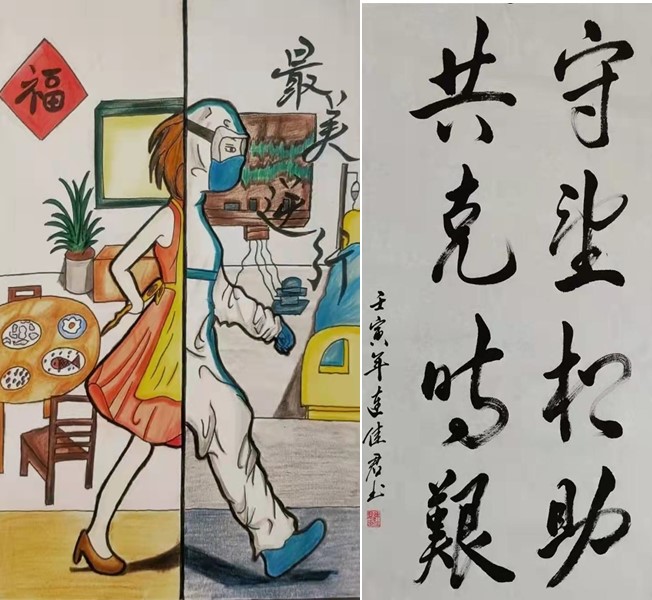 福
最美逆行
守望相助
共克时艱
壬寅年连佳君书